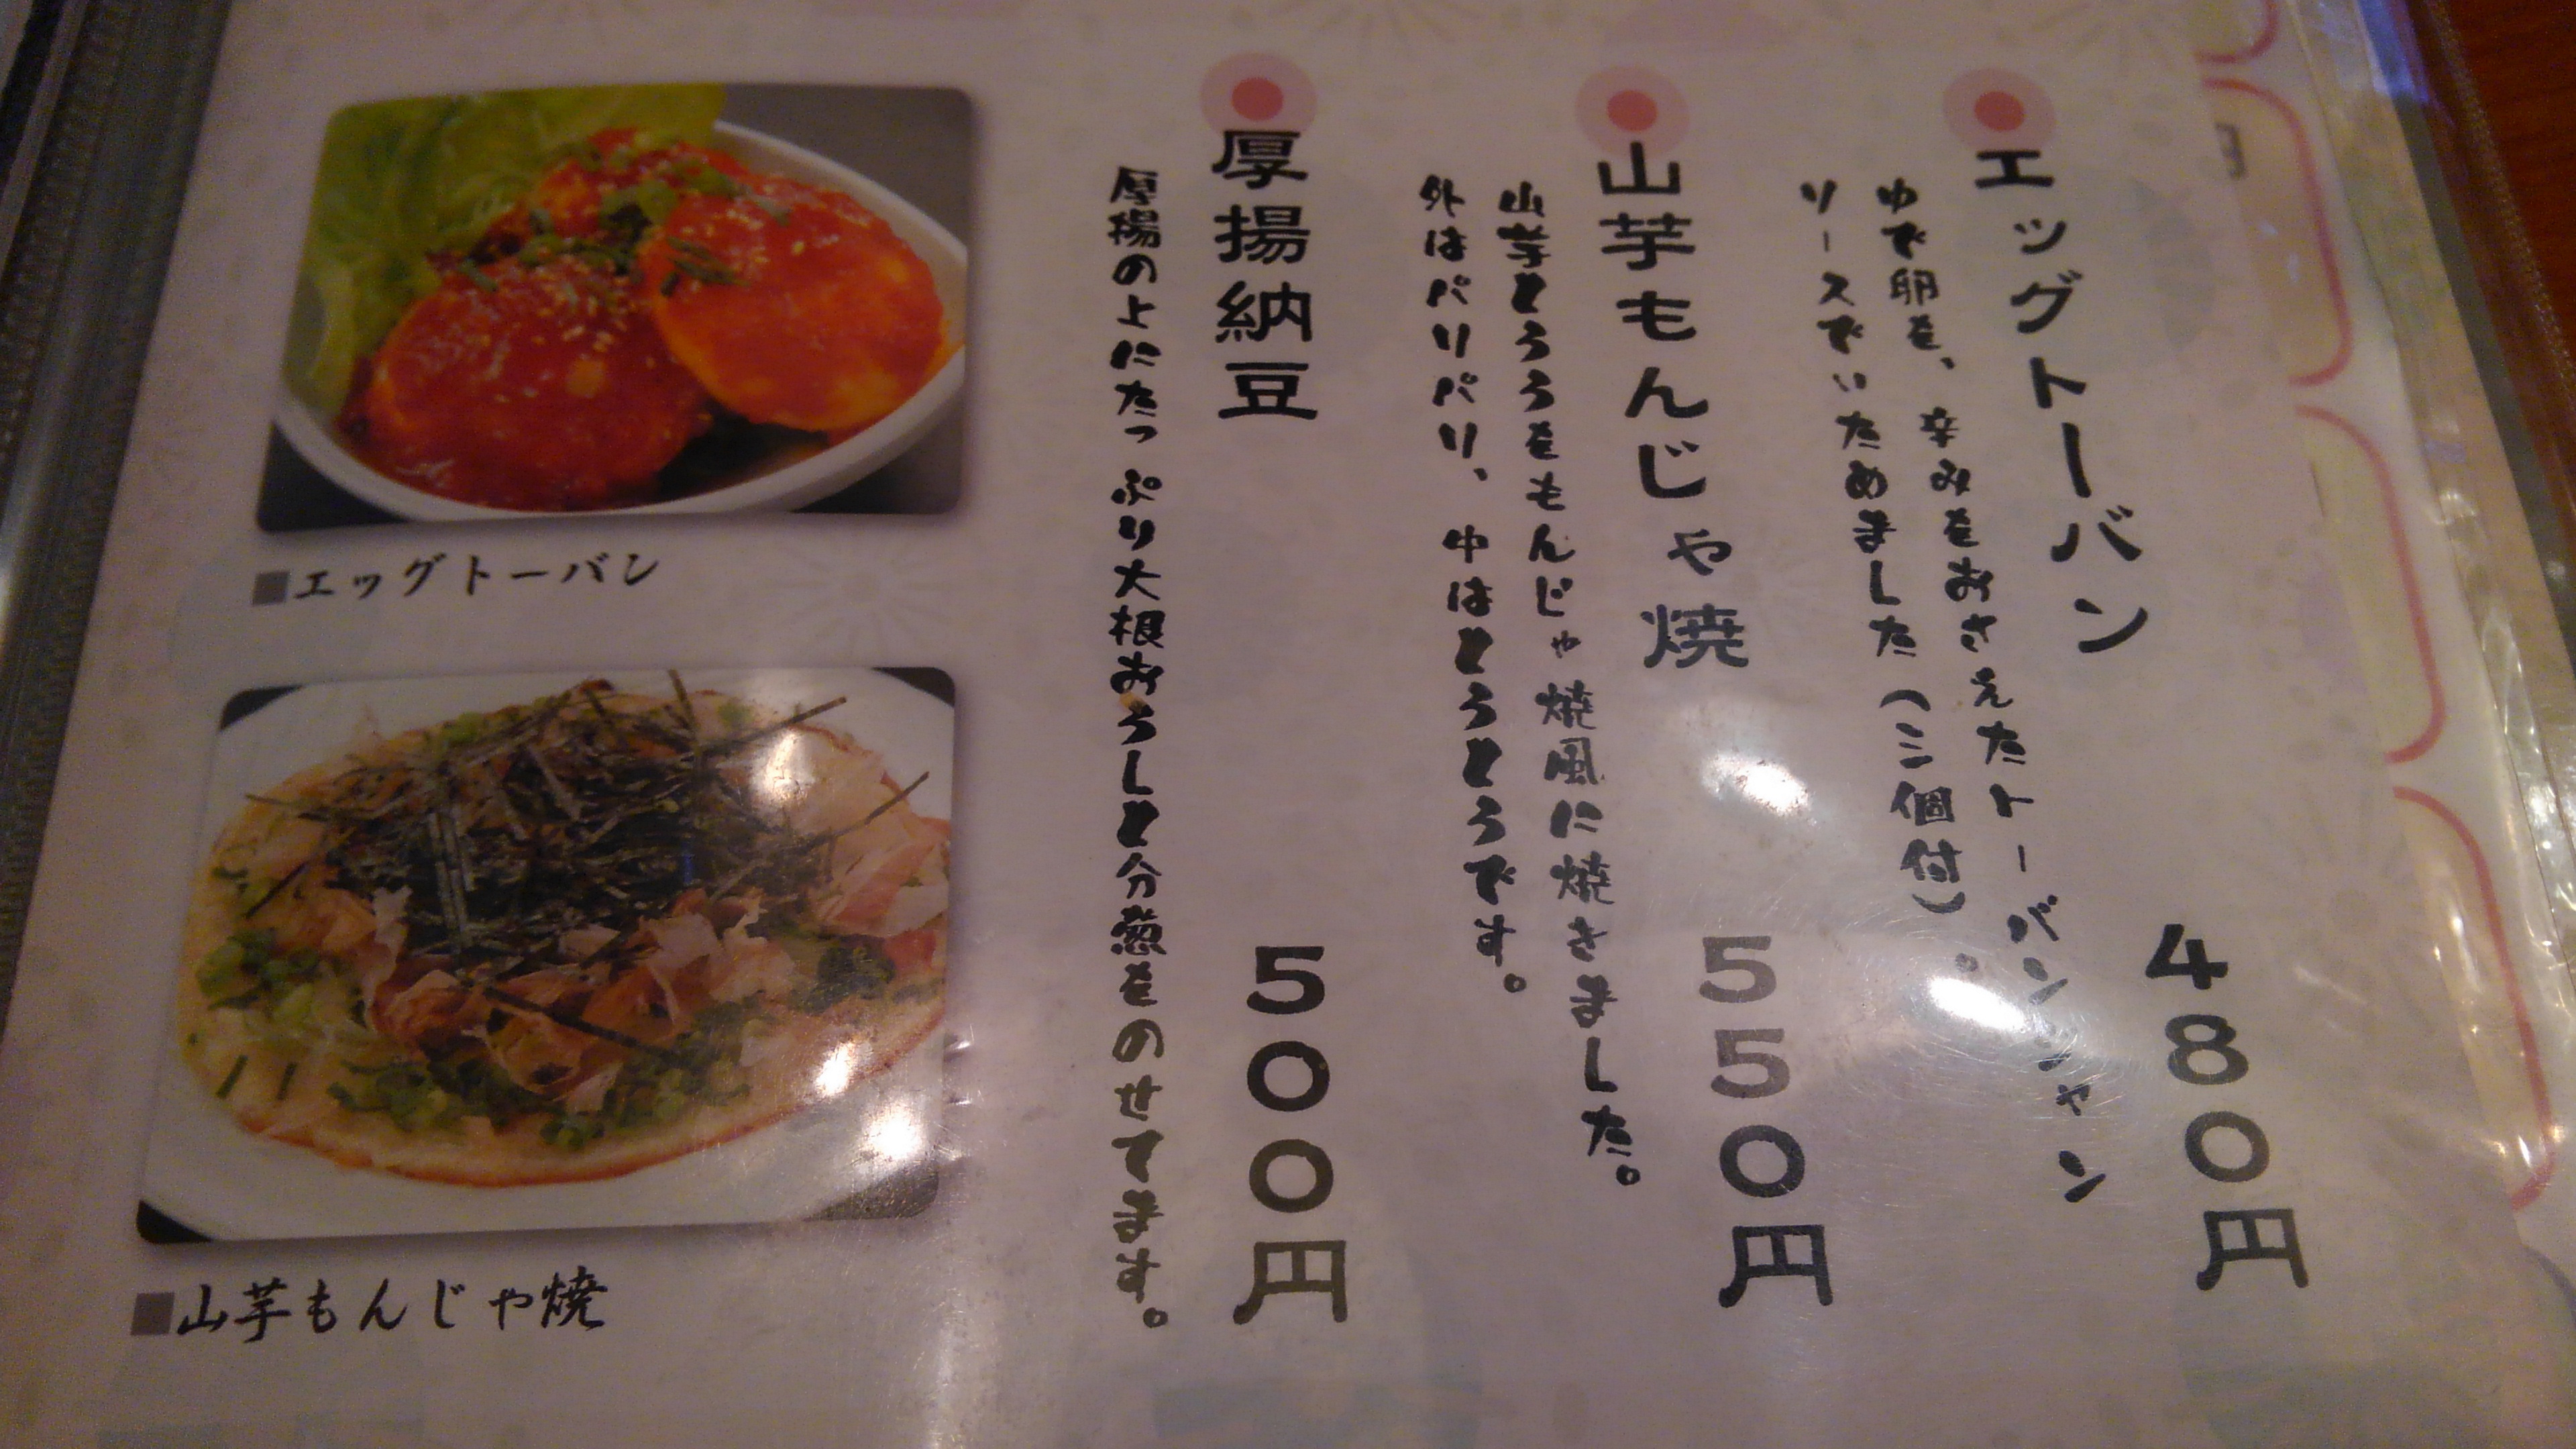 エッグトーバン 480円
ゆで卵を、辛みをおさえたトーバンジャン
ソースでいためました(三個付)。
山芋もんじゃ焼 550円
山芋とろろをもんじゃ焼風に焼きました。
外はパリパリ、中はとろとろです。
厚揚納豆 500円
厚揚の上にたっぷり大根おろしと分葱をのせてます。
■エッグトーバン
■山芋もんじゃ焼